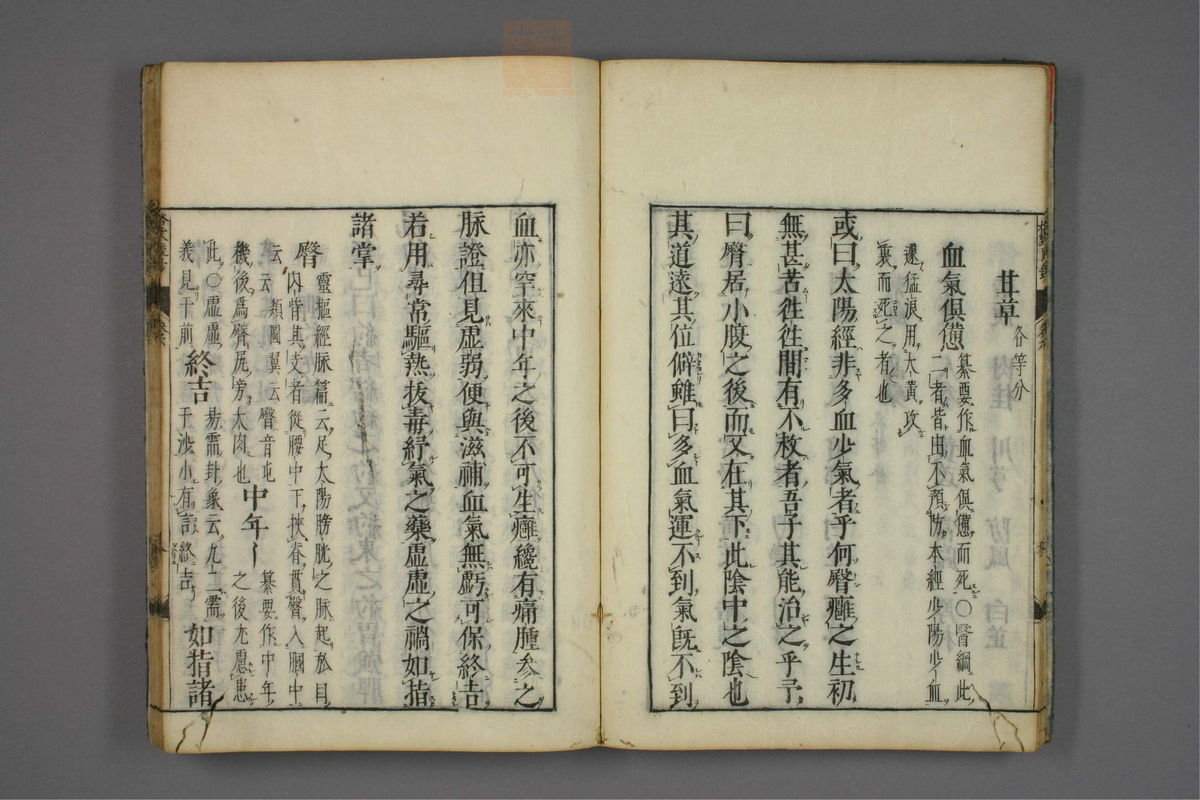 甘草 各等分
血氣俱憊 纂要作血氣俱憊而死○醫綱此
二者皆由不預防本經少陽少血
遽猛浪用大黄攻
裏而死之者也
或曰太陽經非多血少氣者乎何臀癰之生初
無甚苦徃徃間有不救者吾子其能治之乎予
曰臀居小腹之後而又在其下此陰中之陰也
其道逺其位僻雖曰多血氣運不到氣既不到
血亦罕來中年之後不可生癰纔有痛腫參之
脉證但見虚弱便與滋補血氣無虧可保終吉
若用尋常驅熱拔毒紓氣之藥虚虚之禍如指
諸掌
臀 靈樞經脉篇云足太陽膀胱之脉起於目
内眥其支者從腰中下挾脊貫臀入膕中
云云類圖翼云臀音屯
機後爲臀尻旁大肉也 中年〡 纂要作中年
之後尤慮患
此○虚虚
義見于前 終吉 易需卦象云九二需
于沙小有言終吉 如指諸